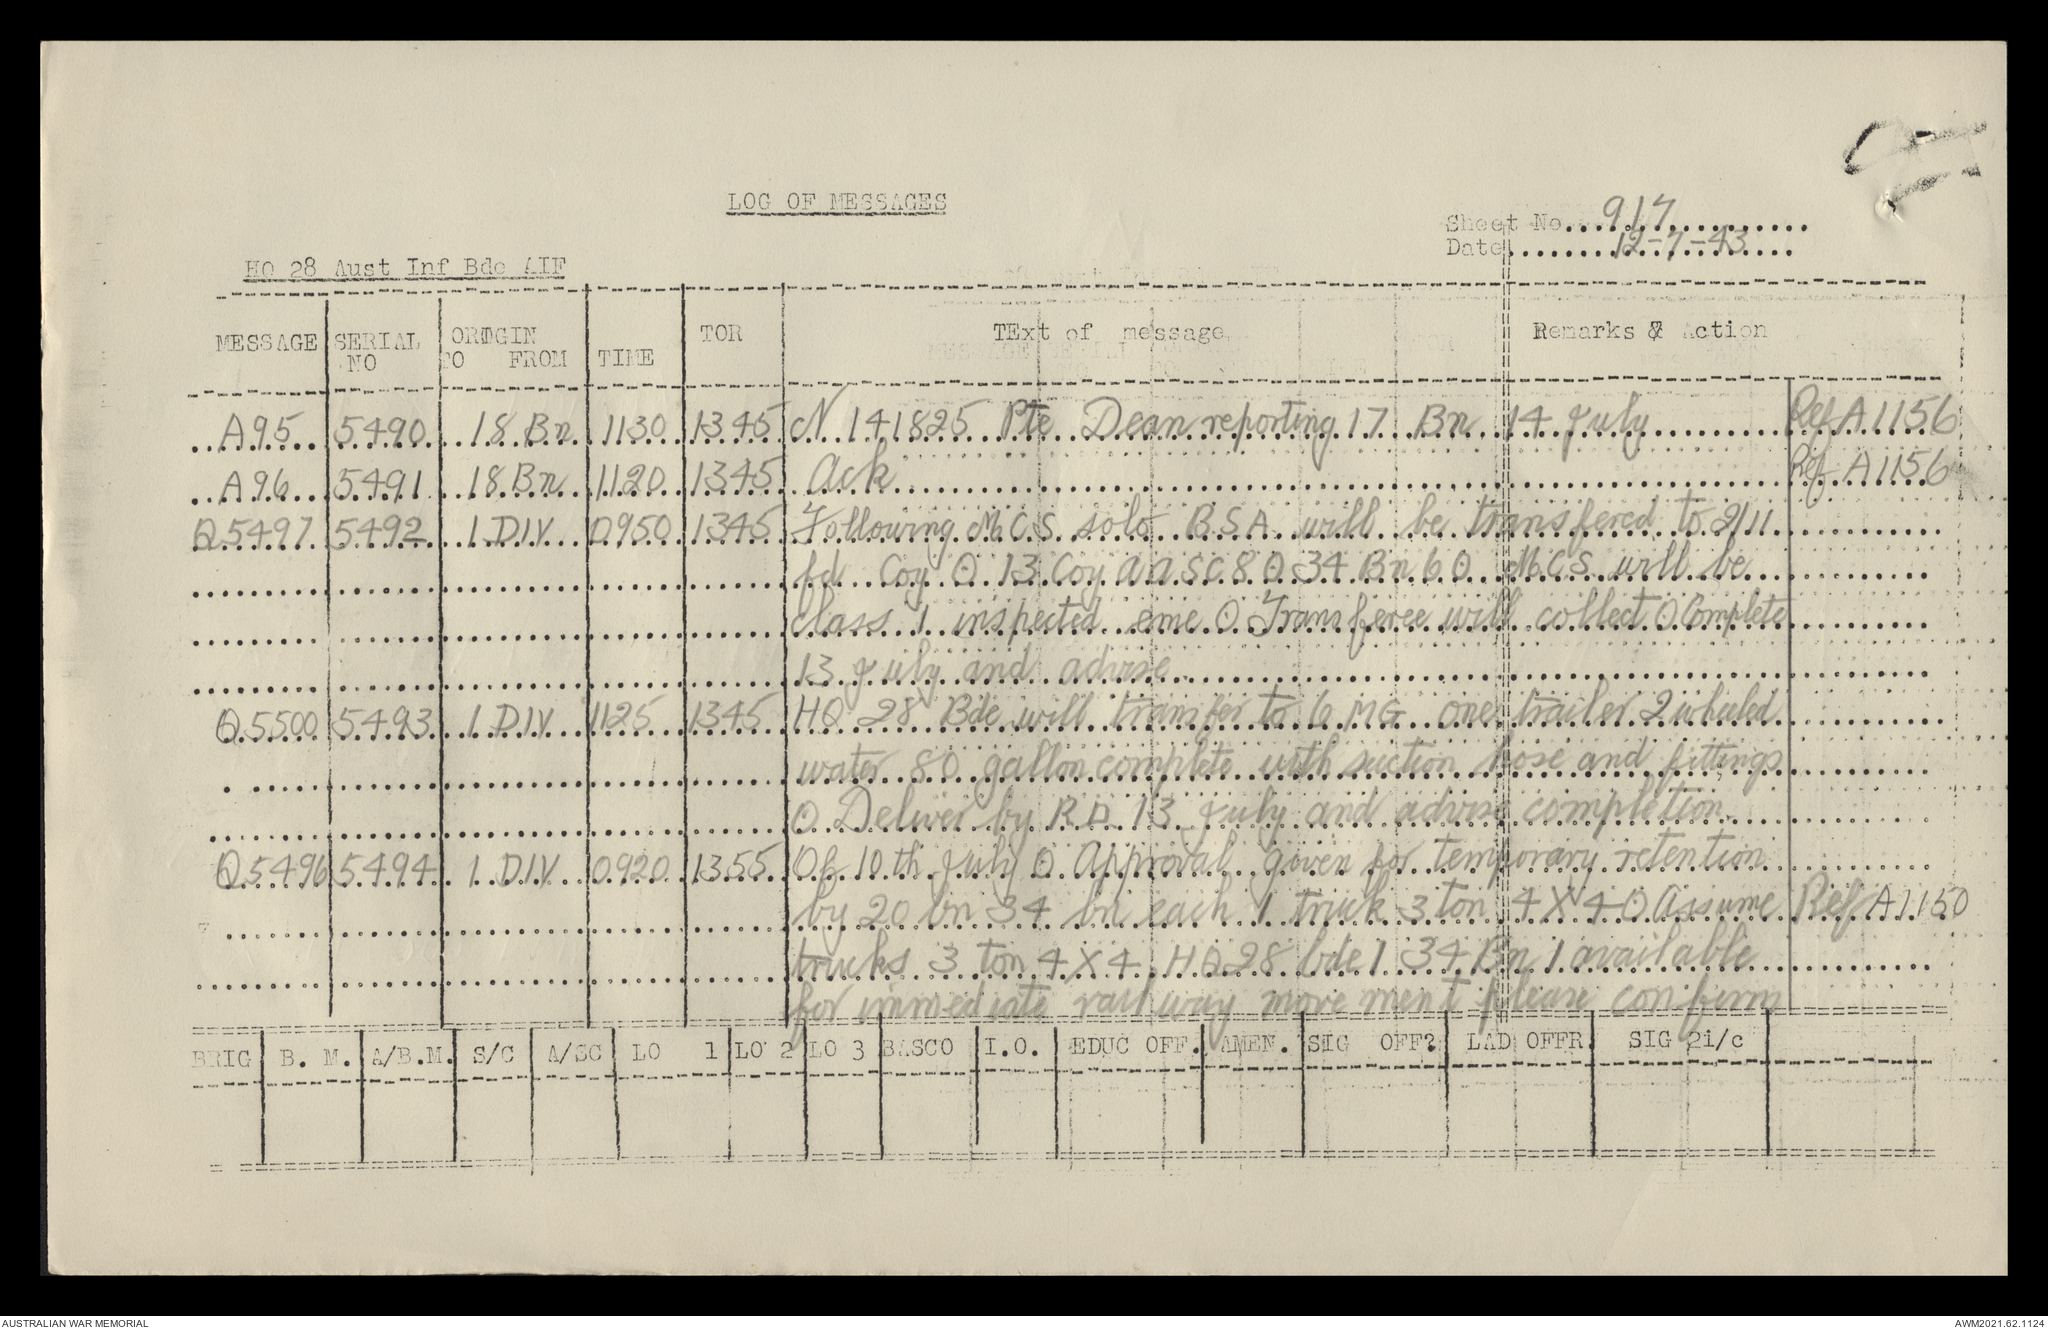 LOG OF MESSAGES
Sheet No. 917
Date 12-7-43
HQ 28 Aust Inf Bde AIF
MESSAGE SERIAL NO ORIGIN TO FROM TIME TOR TExt of message Remarks & Action
A95 5490 18 Bn 1130 1345 N 141825 Pte Dean reporting 17 Bn 14 July Ref A1156
A96 5491 18 Bn 1120 1345 Ack Ref A1156
Q5497 5492 1 DIV 0950 1345 Following M.C.S. solo B.S.A. will be transfered to 2/11
fd Coy O 13 Coy AASC 8 O 34 Bn 6 O M.C.S. will be
class 1 inspected eme O Transferee will collect O Complete
13 July and advise
Q5500 5493 1 DIV 1125 1345 HQ 28 Bde will transfer to 6 MG one trailer 2 wheeled
water 80 gallon complete with suction hose and fittings
O Deliver by R.D. 13 July and advise completion.
Q5496 5494 1 DIV 0920 1355 Of 10th July O Approval given for temporary retention
by 20 bn 34 bn each 1 truck 3 ton 4X4 O Assume Ref A1150
trucks 3 ton 4X4 HQ 28 bde 1 34 Bn 1 available
for immediate railway movement please confirm
BRIG B. M. A/B.M. S/C A/SC LO 1 LO 2 LO 3 BASCO I.O. EDUC OFF. AMEN. SIG OFF? LAD OFFR. SIG 2i/c
AUSTRALIAN WAR MEMORIAL AWM2021.62.1124